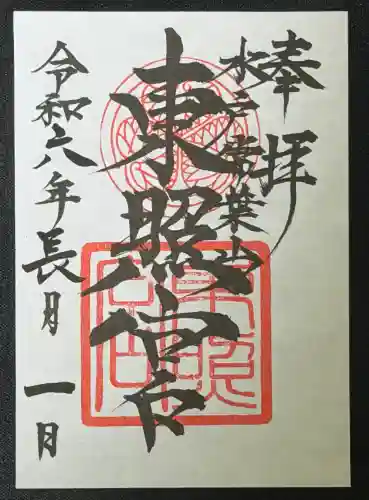 奉拝
水戸常葉山
東照宮
令和六年長月一日